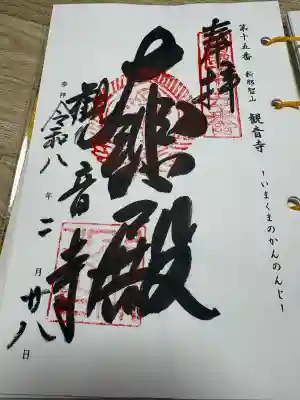 第十五番 新那智山 観音寺
-いまくまのかんのんじ-
奉拝
大悲殿
観音寺
参拝 令和八年二月廿八日